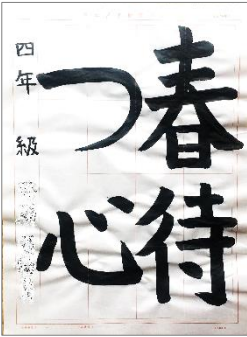 春待
つ心
四年 級